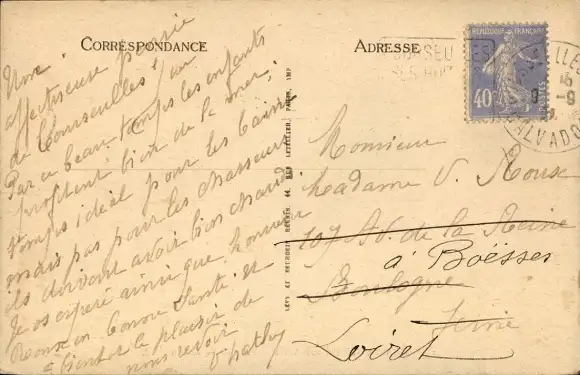 CORRESPONDANCE
ADRESSE
Une
affectueuse pensée
de Courseulles !
Par ce beau temps les enfants
profitent bien de la mer,
temps idéal pour les bains
mais pas pour les chasseurs
ils doivent avoir bien chaud.
Je espère ainsi que
Roux en bonne santé et
à bientôt le plaisir de
vous revoir
LÉVY ET NEURDEIN RÉUNIS, 44, RUE LETELLIER, PARIS, IMP.
RÉPUBLIQUE FRANÇAISE
40
POSTES
COURSEULLES
CALVADOS
Monsieur
Madame V. Roux
107 Av. de la Reine
à Boësses
Boulogne
Seine
Loiret